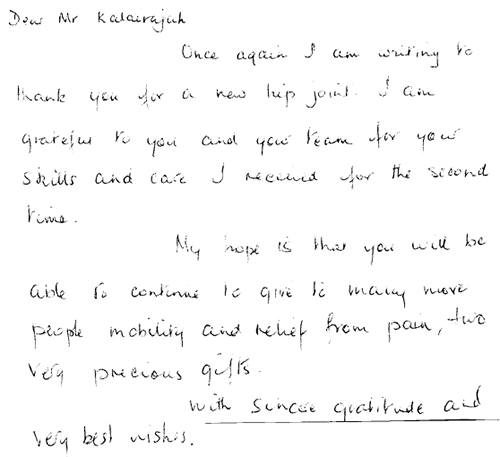 Dear Mr Kalairajah
Once again I am writing to
thank you for a new hip joint. I am
grateful to you and your team for your
skills and care I received for the second
time.
My hope is that you will be
able to continue to give to many more
people mobility and relief from pain, two
very precious gifts.
With sincere gratitude and
very best wishes.